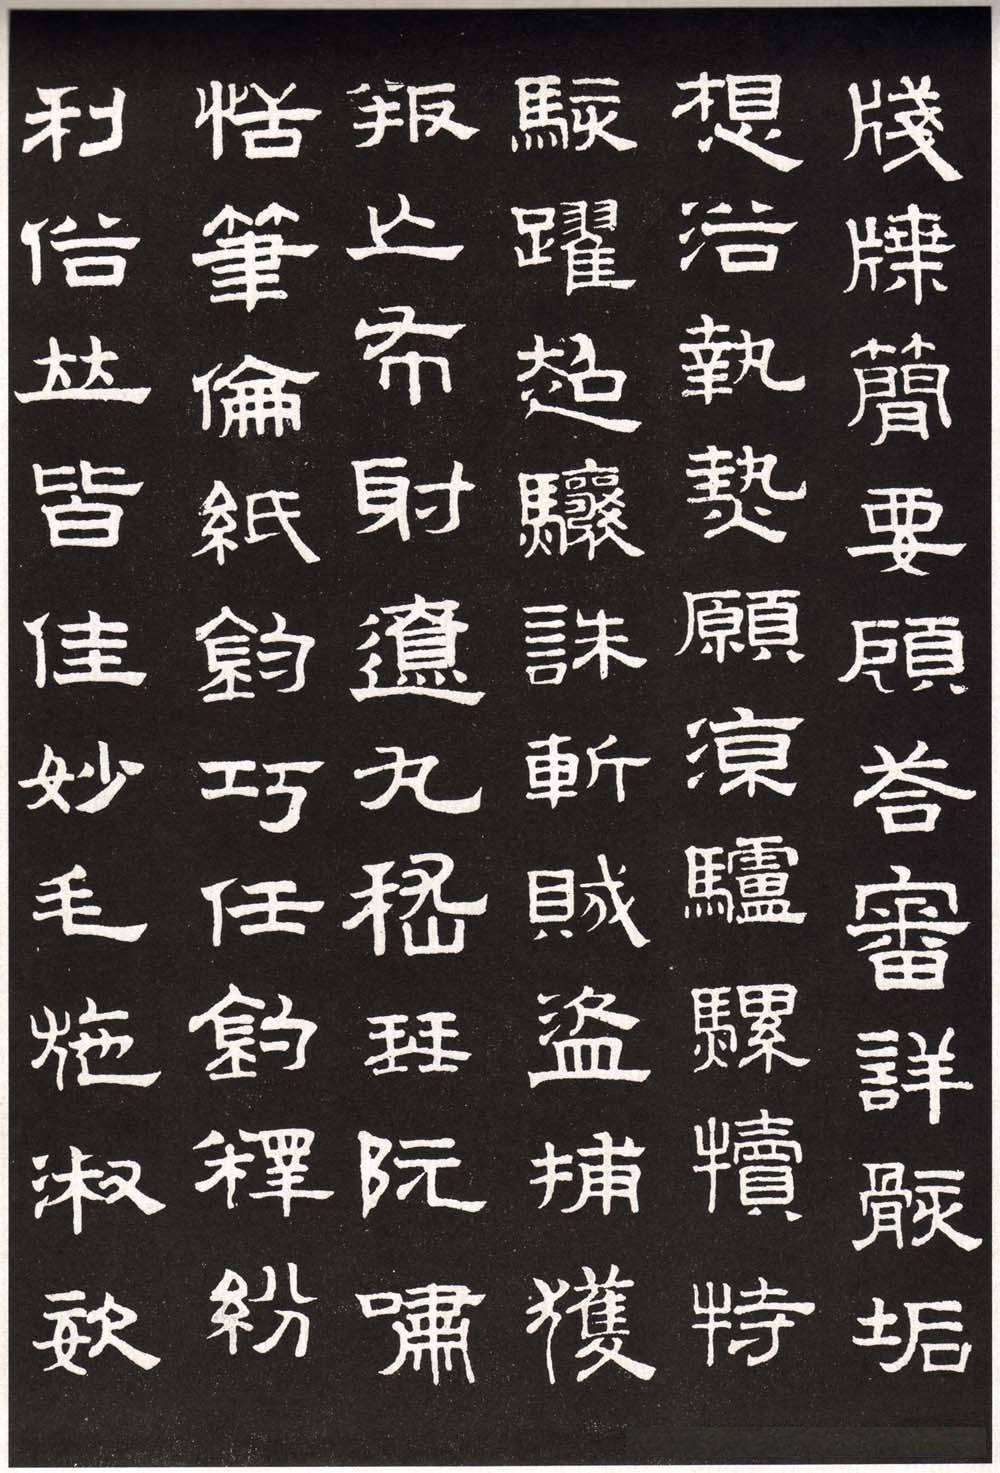 牋牒簡要顧荅審詳骸垢
想浴執熱願凉驢騾犢特
駭躍超驤誅斬賊盜捕獲
叛亾布射遼丸嵇琹阮嘯
恬筆倫紙鈞巧任釣釋紛
利俗並皆佳妙毛施淑姿